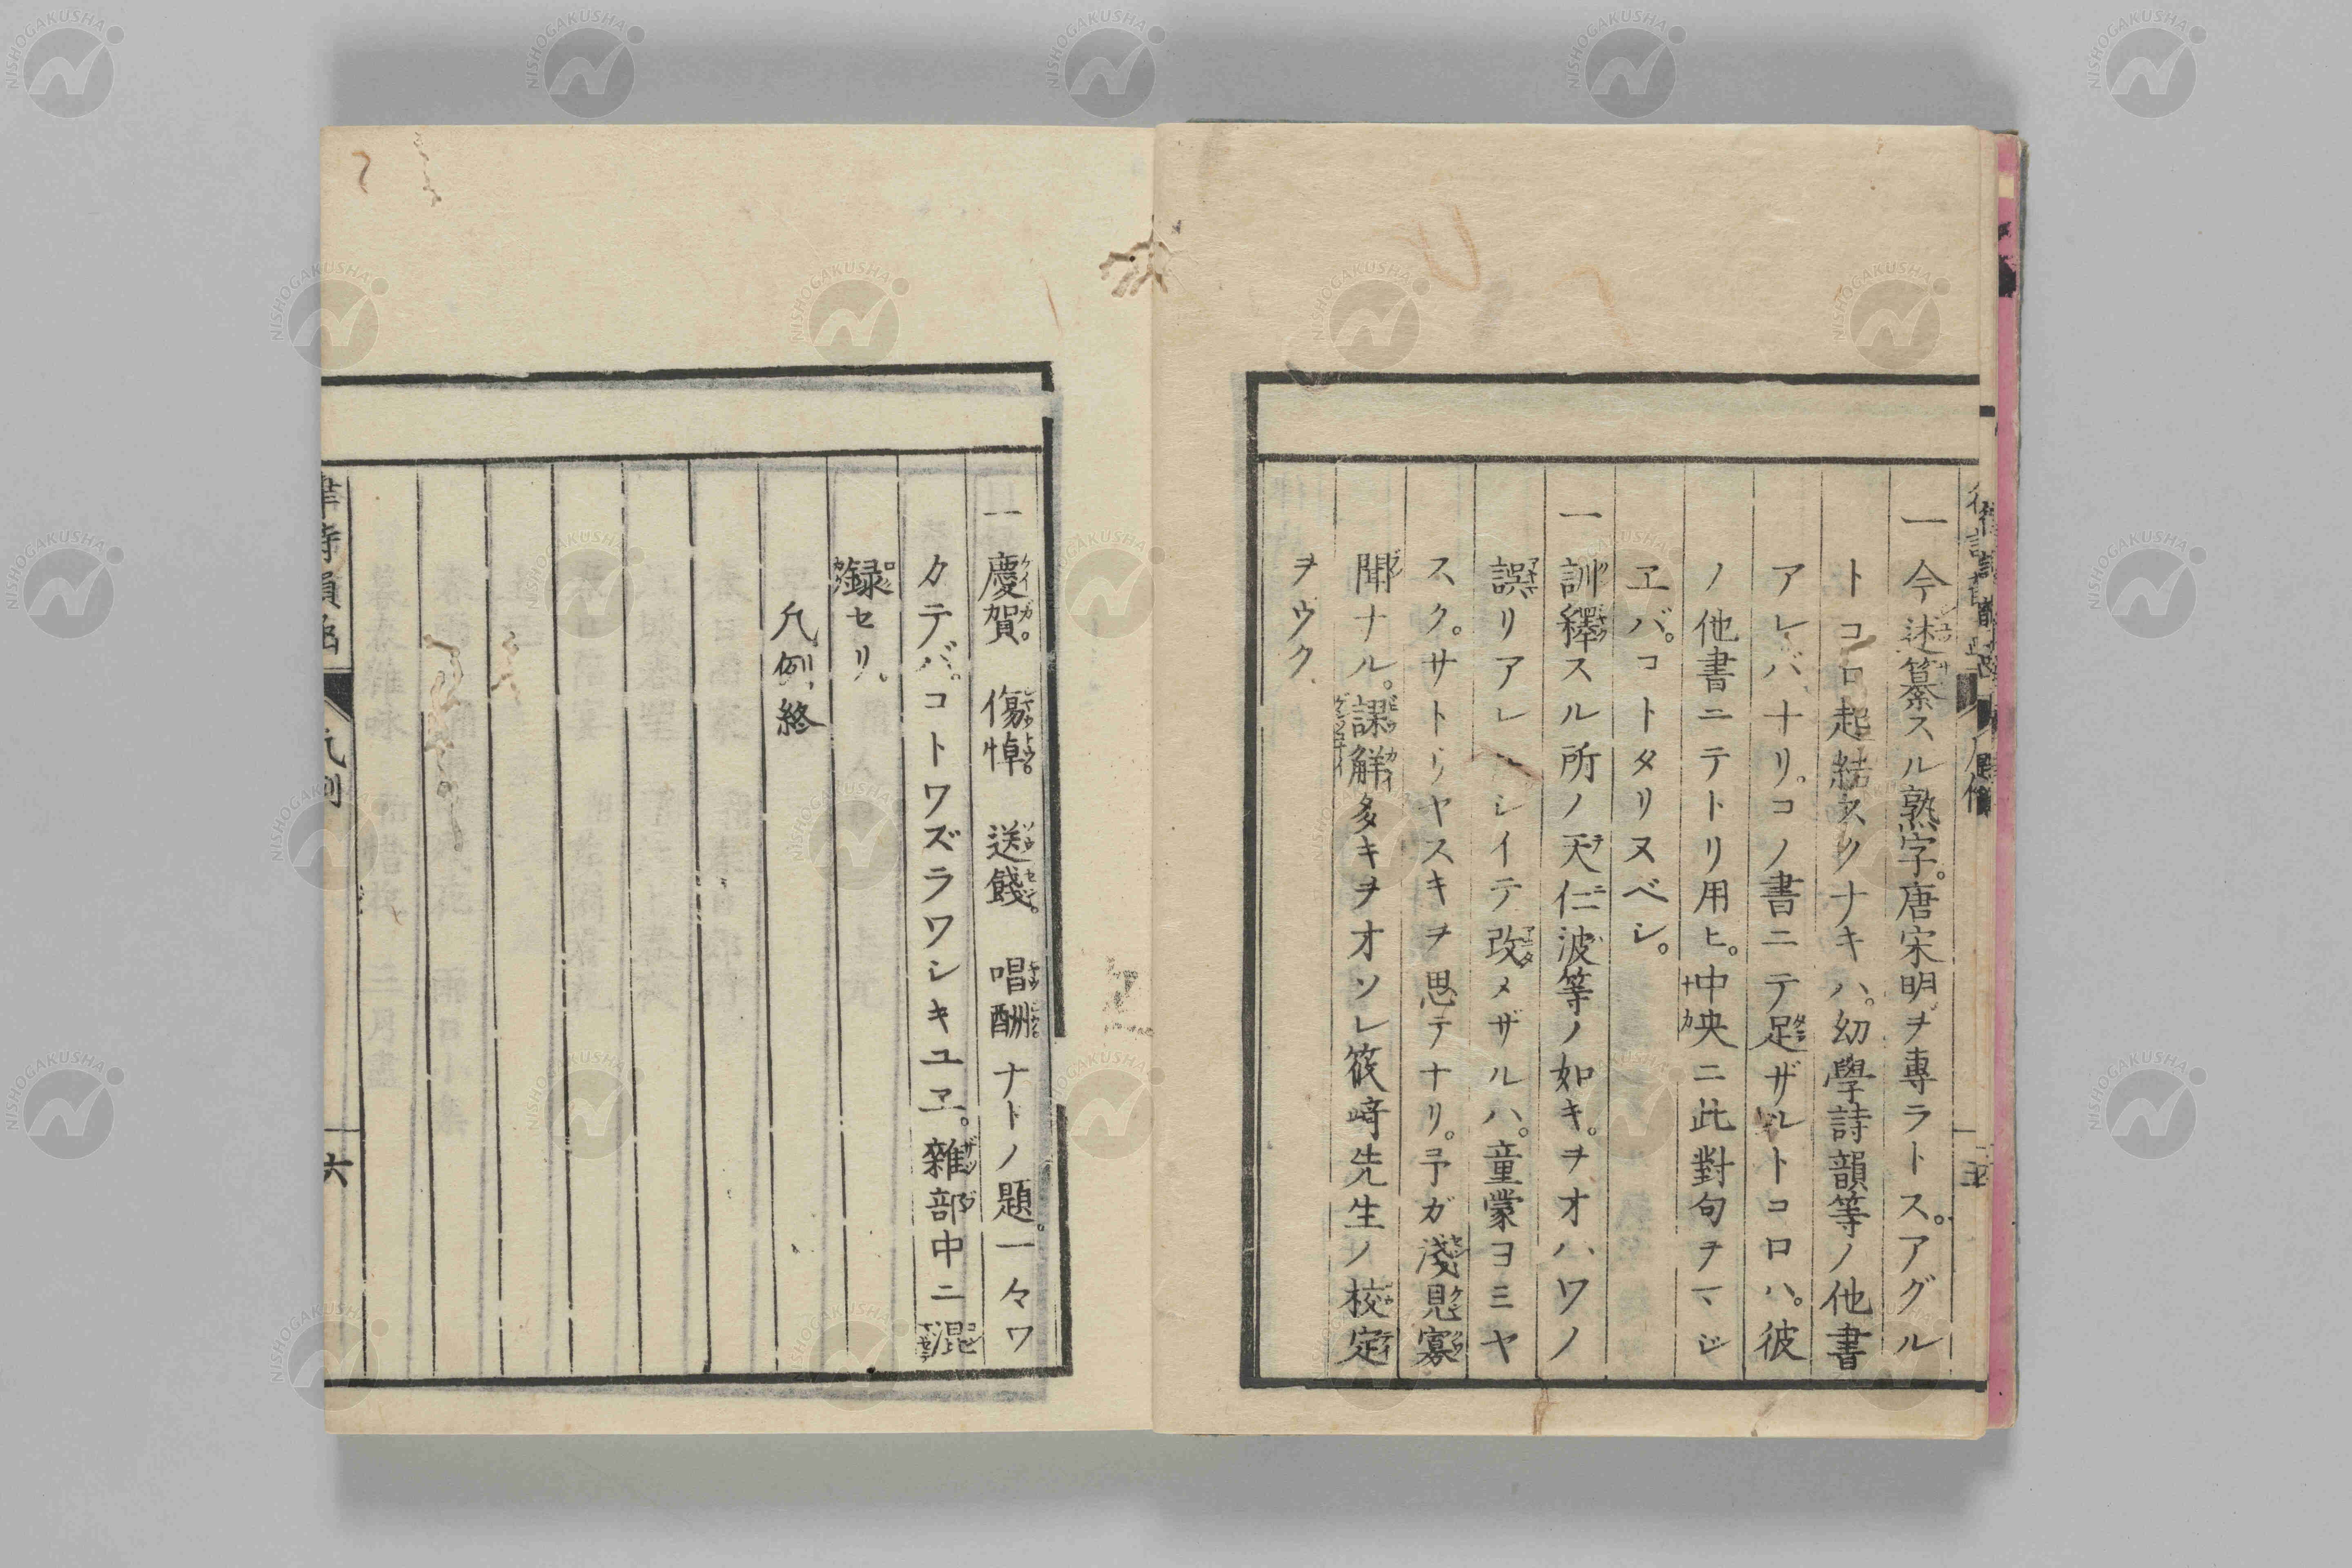 一今述纂スル熟字。唐宋明ヲ專ラトス。アグル
トコロ起結スクナキハ。幼學詩韻等ノ他書
アレバナリ。コノ書ニテ足ザルトコロハ。彼
ノ他書ニテトリ用ヒ。中央ニ此對句ヲマジ
ヱバ。コトタリヌベシ。
一訓釋スル所ノ天仁波等ノ如キ。ヲオハワノ
誤リアレ シイテ改メザルハ。童蒙ヨミヤ
スク。サトリヤスキヲ思テナリ。予ガ淺見寡
聞ナル。謬解多キヲオソレ筱﨑先生ノ校定
ヲウク
一慶賀。傷悼。送餞。唱酬ナトノ題。一々ワ
カテバ。コトワズラワシキユヱ。雜部中ニ混
録セリ。
凡例終
律詩韻函 凡例 六
NISHOGAKUSHA